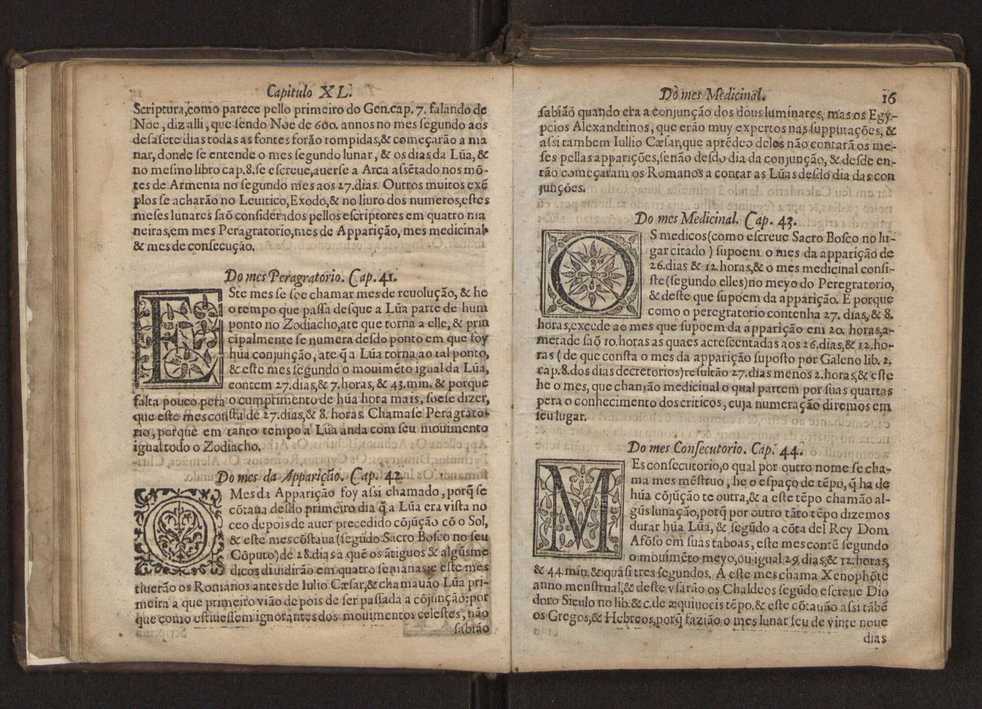 Capitulo XL.
Scriptura,como parece pello primeiro do Gen.cap. 7. falando de
Noe, diz alli, que sendo Noe de 600. annos no mes segundo aos
desasete dias todas as fontes forão rompidas,& começarão a ma
nar, donde se entende o mes segundo lunar, & os dias da Lũa,&
no mesmo libro cap.8.se escreue,auerse a Arca assẽtado nos mõ-
tes de Armenia no segundo mes aos 27.dias. Outros muitos exẽ
plos se acharão no Leuitico,Exodo,& no liuro dos numeros,estes
meses lunares saõ considerados pellos escriptores em quatro ma
neiras,em mes Peragratorio,mes de Apparição, mes medicinal
& mes de consecução.
Do mes Peragratorio. Cap. 41.
ESte mes se soe chamar mes de reuolução, & he
o tempo que passa desque a Lũa parte de hum
ponto no Zodiacho,ate que torna a elle, & prin
cipalmente se numera desdo ponto em que foy
hũa conjunção, ate q̃ a Lũa torna ao tal ponto,
& este mes segundo o mouimẽto igual da Lũa,
contem 27.dias,& 7. horas, & 43. min. & porque
falta pouco pera o cumprimento de hũa hora mais, soese dizer,
que este mes consta de 27.dias,& 8. horas. Chamase Peragrato-
rio, porque em tanto tempo a Lũa anda com seu mouimento
igual todo o Zodiacho.
Do mes da Apparição. Cap. 42.
O Mes da Apparição foy assi chamado, porq̃ se
cõtaua desdo primeiro dia q̃ a Lũa era vista no
ceo depois de auer precedido cõjũção cõ o Sol,
& este mes cõstaua (segũdo Sacro Bosco no seu
Cõputo) de 28.dias a que os ãtiguos & algũs me
dicos diuidirão em quatro semanas, & este mes
tiuerão os Romanos antes de Iulio Cæsar,& chamauão Lũa pri-
meira a que primeiro vião depois de ser passada a cõjunção:por
que como estiuessem ignorantes dos mouimentos celestes, não
sabião
Do mes Medicinal. 16
sabião quando era a conjunção dos dous luminares, mas os Egy-
pcios Alexandrinos, que erão muy expertos nas supputações, &
assi tambem Iullio Cæsar,que aprẽdeo delos não contarão os me-
ses pellas apparições,senão desdo dia da conjunção, & desde en-
tão começaram os Romanos a contar as Lũas desdo dia das con
junções.
Do mes Medicinal. Cap. 43.
OS medicos(como escreue Sacro Bosco no lu-
gar citado ) supoem o mes da apparição de
26.dias & 12.horas,& o mes medicinal consi-
ste (segundo elles) no meyo do Peregratorio,
& deste que supoem da apparição. E porque
como o peregratorio contenha 27. dias, & 8.
horas,excede ao mes que supoem da apparição em 20. horas,a-
metade saõ 10.horas as quaes acrescentadas aos 26.dias,& 12.ho-
ras ( de que consta o mes da apparição suposto por Galeno lib. 2.
cap.8.dos dias decretorios) resultão 27.dias menos 2.horas,& este
he o mes, que chamão medicinal o qual partem por suas quartas
pera o conhecimento dos criticos, cuja numeração diremos em
seu lugar.
Do mes Consecutorio. Cap. 44.
MEs consecutorio,o qual por outro nome se cha-
ma mes mẽstruo, he o espaço de tẽpo, q̃ ha de
hũa cõjũção te outra,& a este tẽpo chamão al-
gũs lunação,porq̃ por outro tãto tẽpo dizemos
durar hũa Lũa, & segũdo a cõta del Rey Dom
Afõso em suas taboas, este mes contẽ segundo
o mouimẽto meyo,ou igual 29.dias,& 12.horas,
& 44.min.& quasi tres segundos. A este mes chama Xenophõte
anno menstrual,& deste vsarão os Chaldeos segũdo escreue Dio
doro Siculo no lib.& c.de æquiuocis tẽpo.& este cõtauão assi tãbẽ
os Gregos,& Hebreos,porq̃ fazião o mes lunar seu de vinte noue
dias